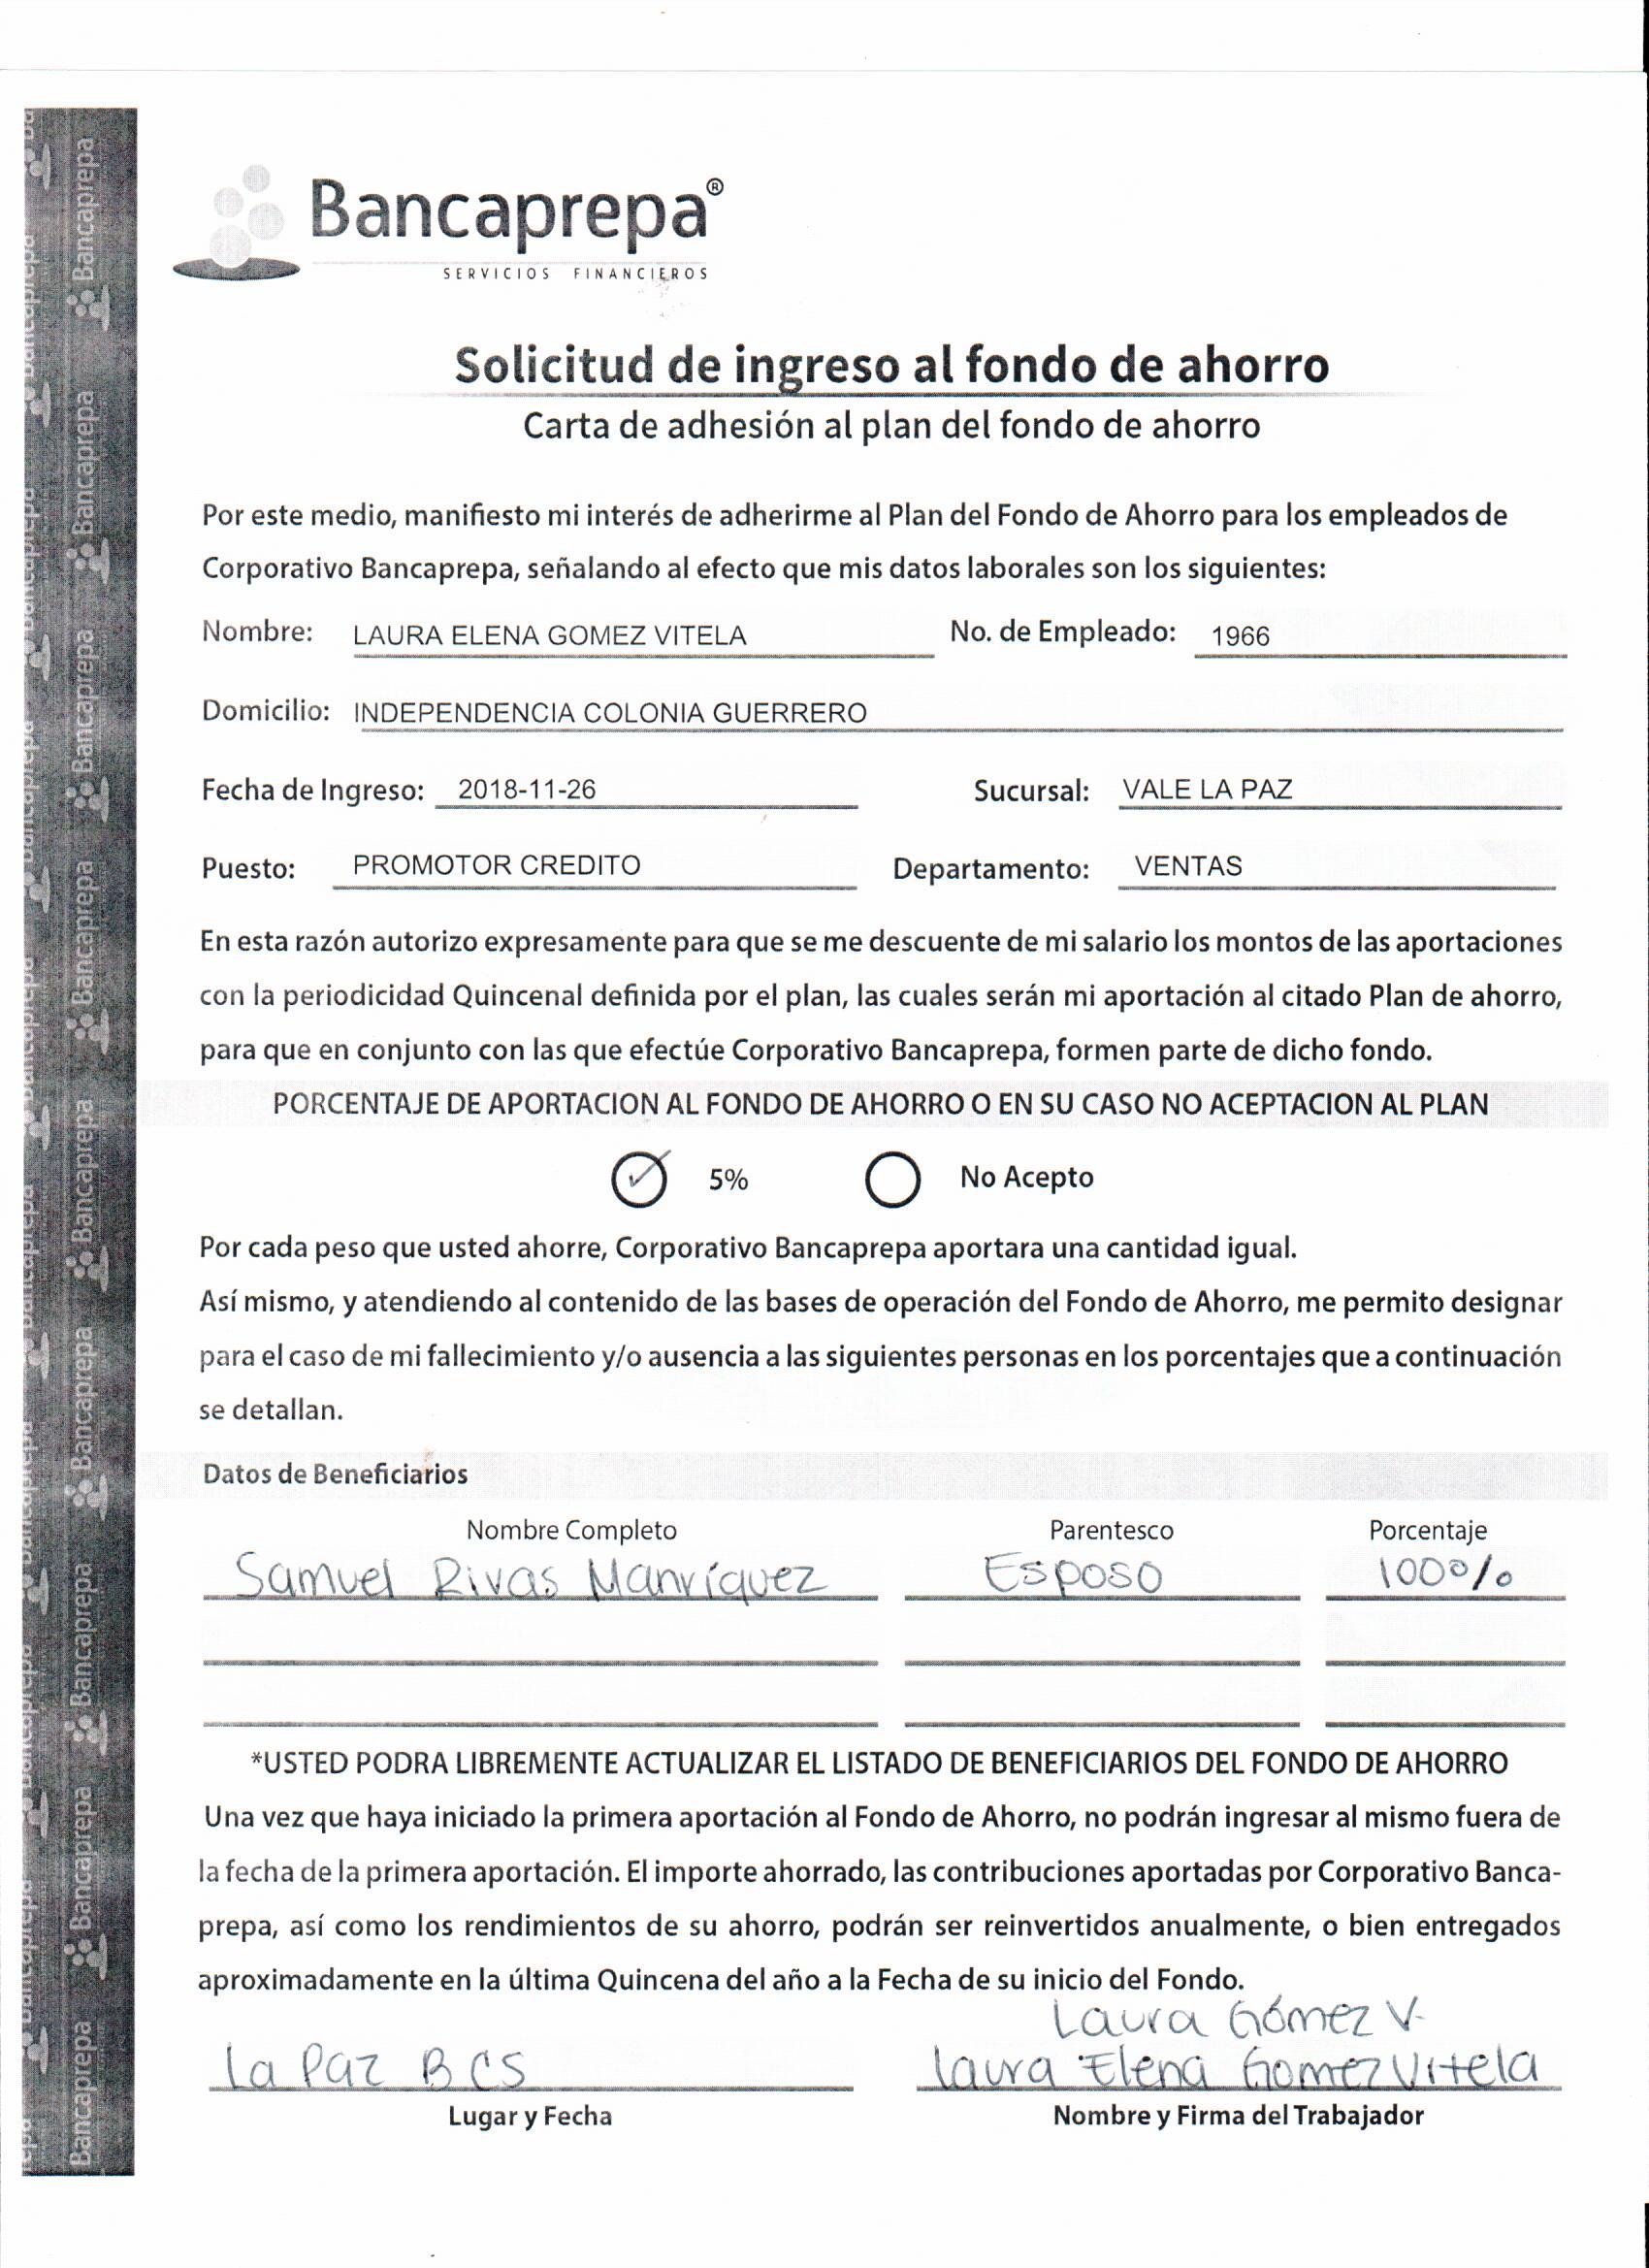 Bancaprepa®
SERVICIOS FINANCIEROS
Solicitud de ingreso al fondo de ahorro
Carta de adhesión al plan del fondo de ahorro
Por este medio, manifiesto mi interés de adherirme al Plan del Fondo de Ahorro para los empleados de
Corporativo Bancaprepa, señalando al efecto que mis datos laborales son los siguientes:
Nombre: LAURA ELENA GOMEZ VITELA No. de Empleado: 1966
Domicilio: INDEPENDENCIA COLONIA GUERRERO
Fecha de Ingreso: 2018-11-26 Sucursal: VALE LA PAZ
Puesto: PROMOTOR CREDITO Departamento: VENTAS
En esta razón autorizo expresamente para que se me descuente de mi salario los montos de las aportaciones
con la periodicidad Quincenal definida por el plan, las cuales serán mi aportación al citado Plan de ahorro,
para que en conjunto con las que efectúe Corporativo Bancaprepa, formen parte de dicho fondo.
PORCENTAJE DE APORTACION AL FONDO DE AHORRO O EN SU CASO NO ACEPTACION AL PLAN
5% No Acepto
Por cada peso que usted ahorre, Corporativo Bancaprepa aportara una cantidad igual.
Así mismo, y atendiendo al contenido de las bases de operación del Fondo de Ahorro, me permito designar
para el caso de mi fallecimiento y/o ausencia a las siguientes personas en los porcentajes que a continuación
se detallan.
Datos de Beneficiarios
Nombre Completo Parentesco Porcentaje
Samuel Rivas Manríquez Esposo 100%
*USTED PODRA LIBREMENTE ACTUALIZAR EL LISTADO DE BENEFICIARIOS DEL FONDO DE AHORRO
Una vez que haya iniciado la primera aportación al Fondo de Ahorro, no podrán ingresar al mismo fuera de
la fecha de la primera aportación. El importe ahorrado, las contribuciones aportadas por Corporativo Banca-
prepa, así como los rendimientos de su ahorro, podrán ser reinvertidos anualmente, o bien entregados
aproximadamente en la última Quincena del año a la Fecha de su inicio del Fondo.
Laura Gómez V.
La Paz BCS Laura Elena Gomez Vitela
Lugar y Fecha Nombre y Firma del Trabajador
Bancaprepa
Bancaprepa
Bancaprepa
Bancaprepa
Bancaprepa
Bancaprepa
Bancaprepa
Bancaprepa
Bancaprepa